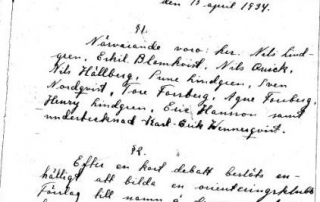 den 13 april 1934.
§1.
Närvarande voro: hrr. Nils Lind-
gren, Erkil Blomkvist, Nils Quick,
Nils Hällberg, Sune Lindgren, Sven
Nordqvist, Tore Forsberg, Agne Forsberg,
Henry Lindgren, Eric Hansson samt
undertecknad Karl-Erik Wennerqvist.
§2.
Efter en kort debatt beslöts en-
hälligt att bilda en orienteringsklubb
Förslag till namn å